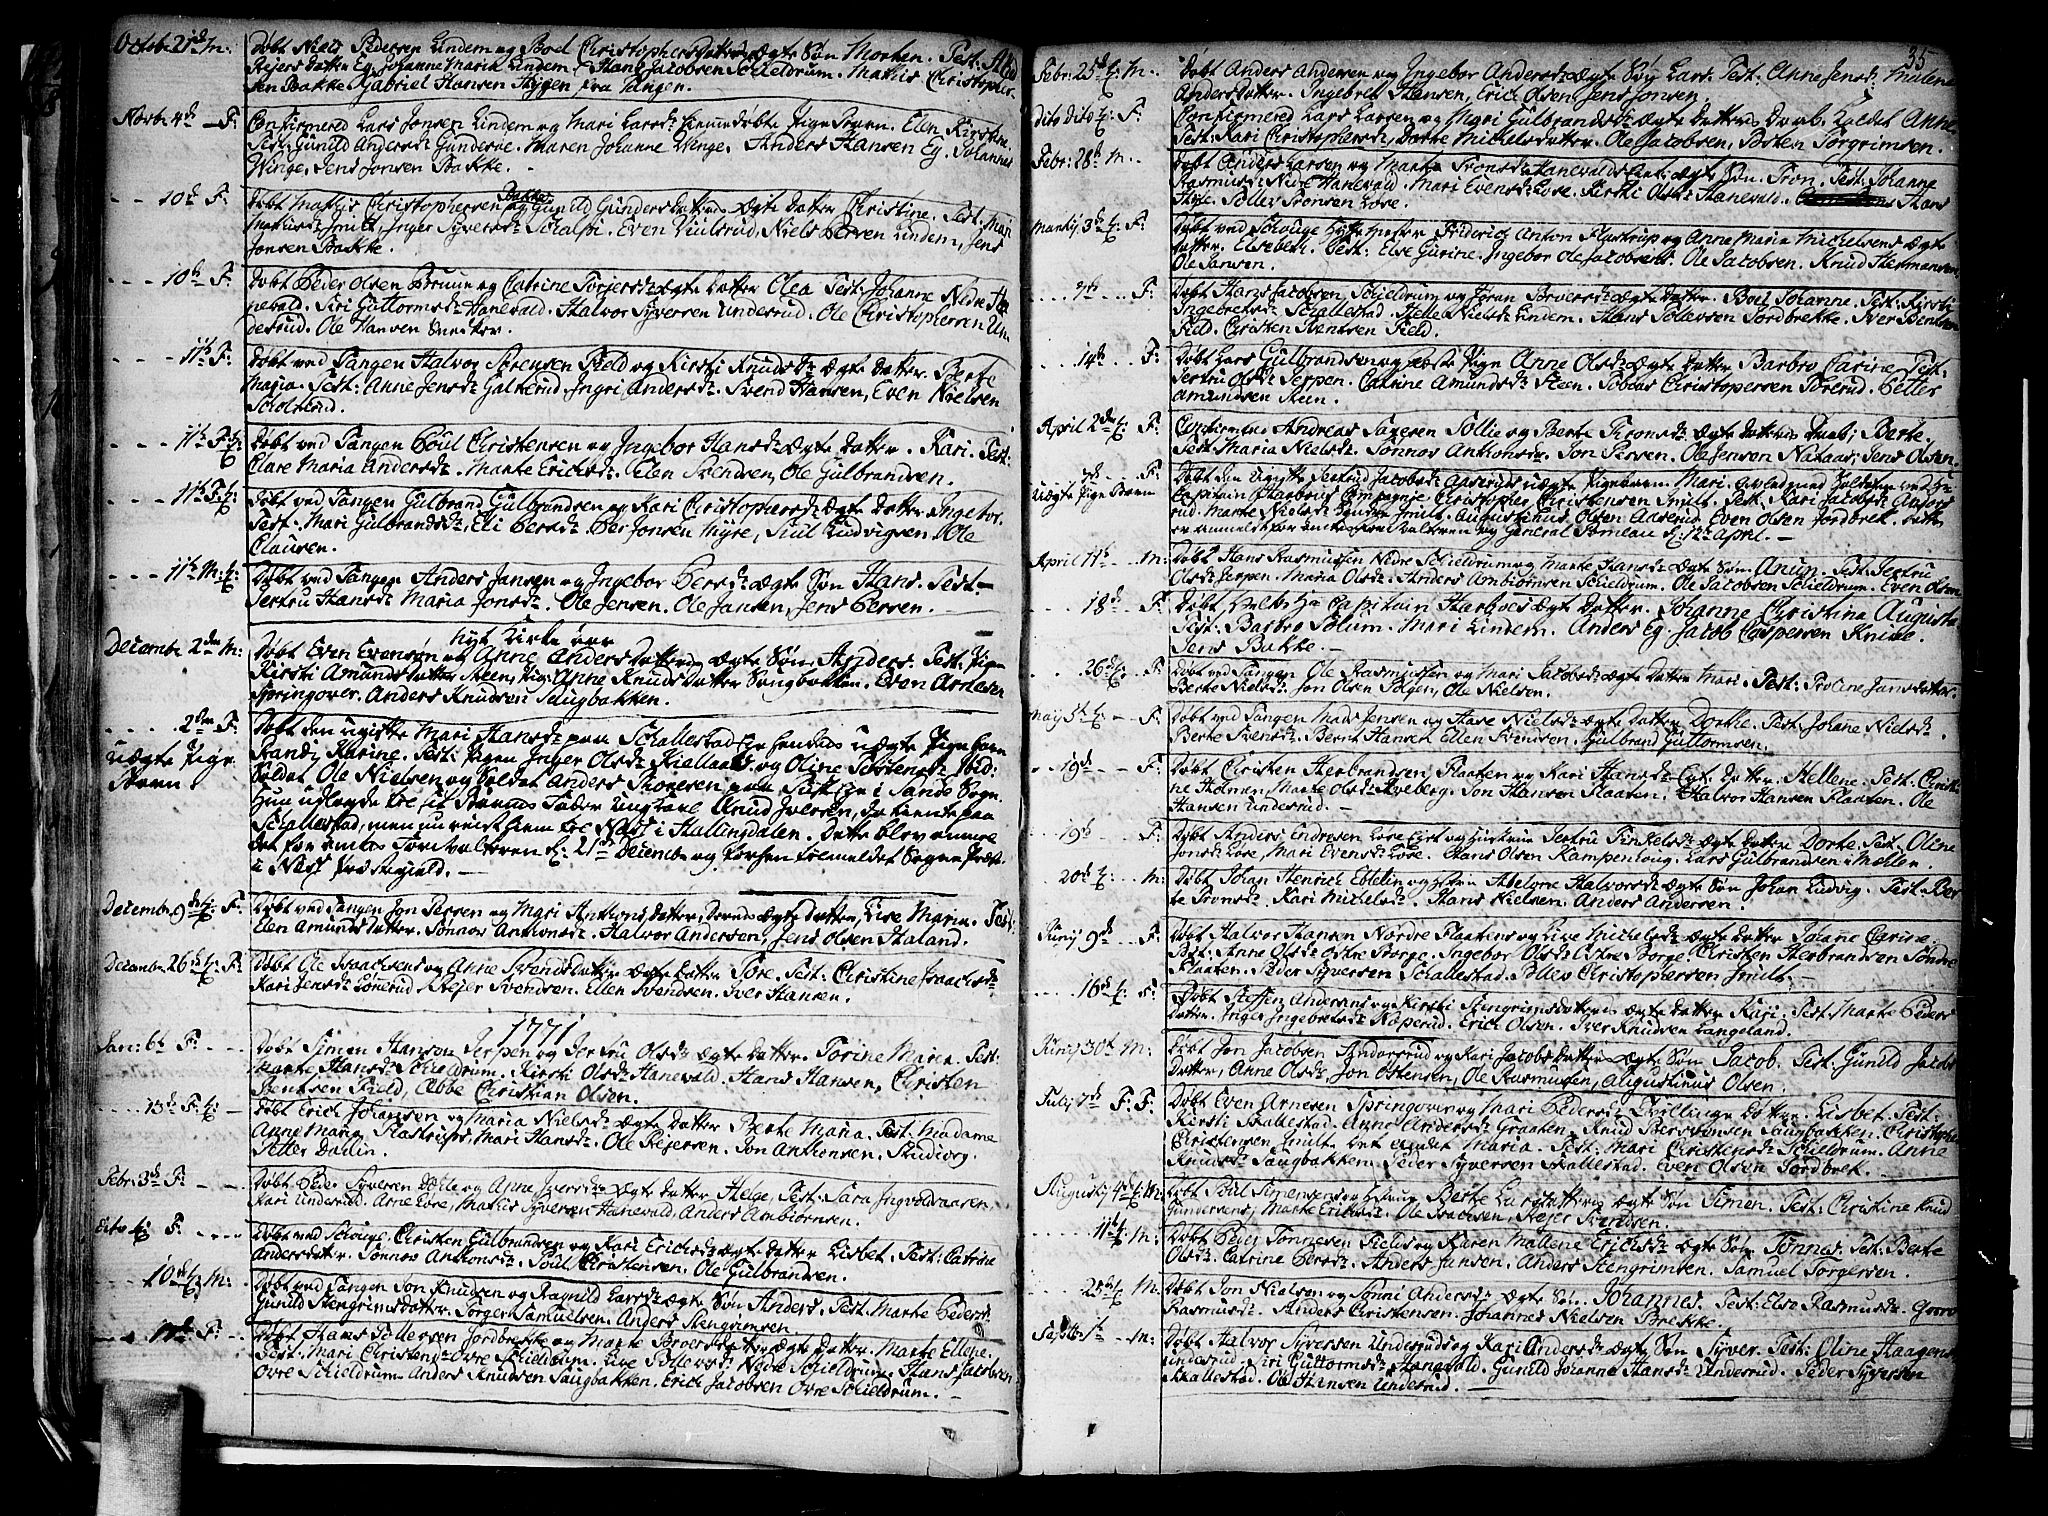 Octobr 21de M: Døbt Niels Pedersen Lindem og Boel Christophersdatters ægte Søn Morten. Test:
Reiersdatter Eg, Johanne Maria Lindem, Hans Jacobsen Schieldrum. Mathis Christopher-
sen Bakke Gabriel Hansen Hygen fra Tangen.
Novbr 4de F: Confirmered Lars Jonsen Lindem og Mari Larsdr hiemmedøbte Pige Barn. Elen Kirstine.
Test: Gunild Andersdr Gundersøe. Maren Johanne Winge, Anders Hansen Eg. Johannes
Winge, Jens Jonsen Bakke.
10de F. Døbt Mathis Christophersen Bakke og Gunild Gundersdatters Ægte datter Christine. Test: Mari
Mathisdr Smitt, Inger Syversdr Schalp. Even Niels Persen Lindem, Jens
Jonsen Bakke.
10de F: Døbt Peder Olsen Bruun og Catrine Torjersdr ægte datter Olea Test: Johanne Nedre Ha-
nevald. Siri Guttormsdr Hanevald. Halvor Syversen Underud. Ole Christophersen Un-
derud. Ole Hansen
11te F: Døbt ved Tangen Halvor Sørensen Field og Kirsti Knudsdr ægte datter Berte
Maria. Test: Anne Jensdr Galterud. Ingri Andersdr. Svend Hansen, Even Nielsen
Scholerud.
11te F: Døbt ved Tangen Poul Christensen og Ingebor Hansdr ægte datter. Kari. Test:
Clare Maria Andersdr. Marte Erichsdr. Ellen Svendsen, Ole Gulbrandsen.
11te F: Døbt ved Tangen Gulbrand Gulbrandsen og Kari Christophersdr ægte datter Ingebor.
Test: Mari Gulbrandsdr Eli Persdr. Per Jonsen Myre, Siul Ludvigsen, Ole
Clausen.
11te M: Døbt ved Tangen Anders Jansen og Ingebor Persdr ægte Søn Hans. Test
Jertru Hansdr Maria Jonsdr. Ole Jensen. Ole Jansen, Jens Persen.
Nyt Kirke aar
Decembr 2den M: Døbt Even Evensøn og Anne Andersdatters ægte Søn Anders. Test: Pigen
Kirsti Amundsdatter Steen, Pig: Anne Knudsdatter Saugbakken. Even Arnesen
Springover. Anders Knudsen Saugbakken.
2den F: Døbt den ugifte Mari Hansdr paa Schallestad hendes uægte Pige barn
uægte Pige Barn
Randi Karine. Test: Pigen Inger Olsdr Kiellaas og Oline Tostensdr ibid:
Soldat Ole Nielsen og Soldat Anders Thoresen i Sande Sogn.
Hun udlagde til sit Barns Fader Ungkarl Knud Iversen, da tiente paa
Schallestad, men nu reist hiem til Næss i Hallingdalen. Dette blev anmel-
det for amtets Forvalteren d: 21de Decembr og tilmeldet Sogne Præst
i Næss Præstegield.
Decembr 9de F: Døbt ved Tangen Jon Persen og Mari Anthonisdatter, deres ægte datter, Live Maria. Test:
Elen Amundsdatter. Tønnes Antonisdr. Halvor Andersen, Jens Olsen Haland.
Decembr 26de F: Døbt Ole Isachsens og Anne Svendsdatters ægte datter Tore. Test: Christine Isaachsdr
Kari Jensdr Lønerud. Reier Svendsen. Ellen Svendsen. Iver Hansen.
1771
Jan: 6te F: Døbt Simon Hanson Jerpen og Jertru Olsdr ægte datter. Torine Maria. Test:
Marte Hansdr Schieldrum. Kirsti Olsdr Hanevald. Hans Hansen, Christen
Bentsen Field, Ebbe Christian Olsen.
13de F: Døbt Erich Johansen og Maria Nielsdr ægte datter Berte Maria. Test: Madame
Anne Maria Flastrups, Mari Hansdr. Ole Reiersen. Jon Anthonsen. Studiosg
Petter Dodin.
Febr: 3de F: Døbt Peder Syversen og Anne Iversdr ægte datter Helge. Test: Sara Ingvoldraasen.
Kari Underud. Arne Løre, Mathis Syversen Hanevald, Anders Ambiørnsen.
F: Døbt ved Schouge, Christen Gulbrandsen og Kari Erichsdr ægte datter Lisbet. Test: Catrine
Andersdatter. Tønnos Anthonsdr. Poul Christensen. Ole Gulbrandsen.
10de M: Døbt ved Tangen Jon Knudsen og Ragnild Larsdr ægte Søn Anders. Test: Marte Pedersdr
Gunild Stengrimsdatter. Torger Samuelsen. Anders Stengrimsen.
F: Døbt Hans Tollefsen Jordbrekke og Marte Broersdatter ægte datter Marte Ellene.
Test: Mari Christensdr Øvre Schieldrum. Live Tollevsdr Nedre Schieldrum. Hans Jacobsen
Øvre Schieldrum. Anders Knudsen Saugbakken. Erich Jacobsen Øvre Schieldrum.
35
Febr: 25de M. Døbt Anders Andersen og Ingebor Andersdr ægte Søn Lars. Test: Anne Jensdr Malene
Andersdatter. Ingebret Hansen, Erich Olsen Jens Jonsen.
dito dito F: Confirmered Lars Larsen og Mari Gulbrandsdr ægte datters daab. kaldet Anne
Test: Kari Christophersdr, Dorte Michelsdatter. Ole Jacobsen, Torgrimsen.
Febr: 28de M. Døbt Anders Larsen og Marte Tronsdr Hanevalds ægte Søn. Tron. Test: Johanne
Rasmusdr Nedre Hanevald. Mari Evensdr Løre. Kirsti Olsdr Hanevald. Hans
Tollef Tronsen Løre.
Martij 3de F: Døbt ved Schouge Hytte Friderich Anton Flastrup og Anne Maria Michelsens ægte
datter. Elsebeth. Test: Else Gurine. Ingebor Ole Jacobsens. Ole Jacobsen. Knud Hermansen
Ole Jansen.
F: Døbt Hans Jacobsen, Schieldrum og Jøran Broersdr ægte datter. Boel Johanne. Test: Kirsti
Ingebretsdr Schallestad. Helle Nielsdr Lindem. Hans Tollevsen Jordbrekke. Iver Bentsen
Field. Christen Bentsen Field.
14de F: Døbt Lars Gulbrandsen og Anne Olsdr ægte datter Barbro Carine Test:
Jertru Olsdr Jerpen. Catrine Amundsdr Steen. Tobias Christophersen Torerud. Petter
Amundsen Steen.
April 2den F: Confirmered Andreas Tagesen Tollie og Berte Tronsdr ægte datters daab; Berte.
Test: Maria Nielsdr Tønnos Anthonsdr. Jon Persen. Ole Jensen Nataas, Jens Olsen.
7de F: Døbt den ugifte Jertrud Jacobsdr Aaseruds uægte Pigebarn Mari. avled med Soldaten ved
uægte Pige Barn
Capitain Harboes Compagnie Christopher Christensen Smitt. Test: Kari Jacobsdr Aase-
rud. Marte Nielsdr Smitt. Augustinus Olsen Aaserud Even Olsen Jordbrek. Dette
er anmeldt for og General d: 12te april.
April 11te M: Døbt Hans Rasmussen Nedre Schieldrum og Marte Hansdr ægte Søn Anun. Test: Jertru
Olsdr Jerpen. Maria Olsdr. Anders Ambiørnsen Schieldrum. Ole Jacobsen Schieldrum. Even Olsen
18de F: Døbt Capitain Harboes ægte datter. Johanne Christina Augusta
Test: Barbro Solum. Mari Lindem. Anders Eg. Jacob Caspersen Knive.
Jens Bakke.
26de F: Døbt ved Tangen Ole Rasmussen og Mari Jacobsdr ægte datter Mari. Test: Troline Jansdatter.
Berte Nielsdr Jon Olsen, Ole Nielsen.
Maij 5te F: Døbt ved Tangen Mads Jensen og Nielsdr ægte datter Dorthe. Test: Johanne Nielsdr.
Berte Svensdr. Bernt Hansen Ellen Svendsen. Gulbrand Guttormsen.
19de F: Døbt Christen Herbrandsen Flaaten og Kari Hansdr ægte datter. Hellene. Test: Christi-
ne Holmen. Marte Olsdr Hvelberg. Jon Hansen Flaaten. Halvor Hansen Flaaten. Ole
Hansen Underud.
19de F: Døbt Anders Endresen Løre og Hustrue Jertru Tinkelsdr ægte datter Dorte. Test. Oline
Jonsdr Løre, Mari Evensdr Løre. Hans Olsen Kampenhoug. Lars Gulbrandsen i Møllen.
20de M: Døbt Johan Henrich Ebbelin og Abelone Halvorsdr ægte Søn Johan Ludvig. Test: Ber-
te Tronsdr. Kari Michelsdr. Hans Nielsen. Anders Andersen.
Junij 9de F: Døbt Halvor Hansen Nordre Flaatens og Live Michelsdr ægte datter. Johanne Carine.
Test: Anne Olsdr Østre Borge. Ingebor Olsdr Østre Borge. Christen Herbrandsen Søndre
Flaaten. Peder Syversen Schallestad. Tollev Christophersen Smitt.
16de F: Døbt Steffen Andersens og Kirsti Stengrimsdatters ægte datter Kari. Test: Marte Peders
datter. Inger Ingebretsdr Noperud. Erich Olsen. Iver Knudsen Langeland.
Junij 30te M: Døbt Jon Jacobsen Andorsrud og Kari Jacobsdatters ægte Søn Jacob. Test: Gunild Jacobs
datter, Anne Olsdr, Jon Ostensen, Ole Rasmussen, Augustinus Olsen.
Julij 7de F: F: Døbt Even Arnesen Springover og Mari Pedersdr Tvillinge døttre. Lisbet. Test:
Kirsti Skallestad. Anne Andersdr Graaten. Knud Saugbakken. Christophe
Christensen Smitt. Det andet Maria. Test: Mari Christensdr Schieldrum. Anne
Knudsdr Saugbakken. Peder Syversen Skallestad. Even Olsen Jordbrek.
Augustij 4de M: Døbt Poul Simensens og Hustrue Berte Larsdatters ægte Søn Simen. Test: Christine Knud
Gundersens, Marte Erichsdr. Ole Isachsen, Reier Svendsen.
11te M: Døbt Peder Tønnesen Fields og Karen Mallene Erichsdr ægte Søn Tønnes. Test: Berte
Olsdr. Catrine Persdr. Anders Jansen. Anders Stengrimsen. Samuel Torgersen.
25de M: Døbt Jon Nielsen og Tønni Andersdr ægte Søn. Johannes. Test: Else Rasmusdr
Rasmusdr. Anders Christensen. Johannes Nielsen Brekke.
M: Døbt Halvor Syversen Underud og Kari Andersdr ægte Søn Syver. Test: Oline Haagensdr
Underud. Siri Guttormsdr Hanevald. Gunild Johanne Hansdr Underud. Peder Syversen
Skallestad. Ole Hansen Underud.